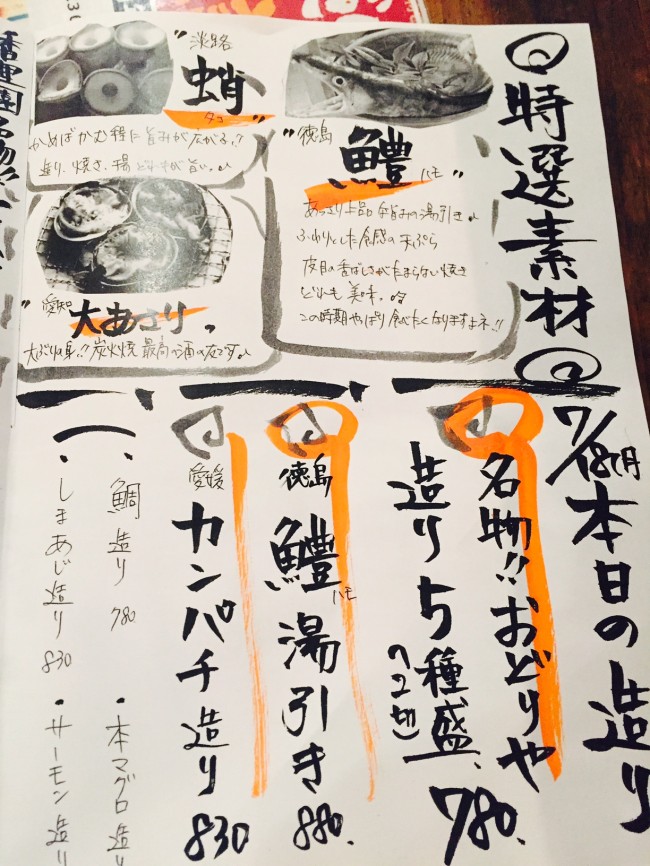 特選素材
"徳島
鱧
ハモ"
あっさり上品な旨みの湯引き♪
ふわりとした食感の天ぷら
皮目の香ばしさがたまらない焼き
どれも美味。
この時期やっぱり食べたくなりますよネ!!
"淡路
蛸
タコ"
かめばかむ程に旨みが広がる!!
造り、焼き、揚 どれもが旨い♪
"愛知
大あさり"
大ぶりの身!!炭火焼 最高の酒の友です♪
7/18
本日の造り
名物!!おどりや
造り5種盛
(一人一切) 780.
徳島
鱧
ハモ
湯引き 880.
愛媛
カンパチ造り 830
・鯛造り 780
・本マグロ造り
・しまあじ造り 830
・サーモン造り